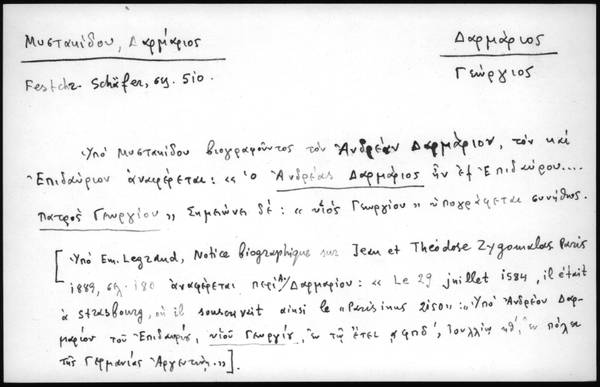 Μυστακίδου, Δαρμάριος
Δαρμάριος
Festchr. Schäfer, σελ. 510.
Γεώργιος
Ὑπό Μυστακίδου βιογραφοῦντος τόν Ἀνδρέαν Δαρμάριον, τόν καί
Ἐπιδαύριον ἀναφέρεται: « ὁ Ἀνδρέας Δαρμάριος ἦν ἐξ Ἐπιδαύρου....
πατρός Γεωργίου » Σημειώνει δέ: « υἱός Γεωργίου » ὑπογράφεται συνήθως.
[Ὑπό Em. Legrand, Notice biographique sur Jean et Théodose Zygomalas Paris
1889, σελ. 180 ἀναφέρεται περί Ἀ/ Δαρμαρίου: « Le 29 juillet 1584, il était
à Strasbourg, où il souscrivit ainsi le «Parisinus 2150»: «Ὑπό Ἀνδρέου Δαρ-
μαρίου τοῦ Ἐπιδαυρίου, υἱοῦ Γεωργίου, ἐν τῷ ἔτει αφπδ', Ἰουλλίῳ κθ', ἐν πόλει
τῆς Γερμανίας Ἀργεντίνῃ.»].